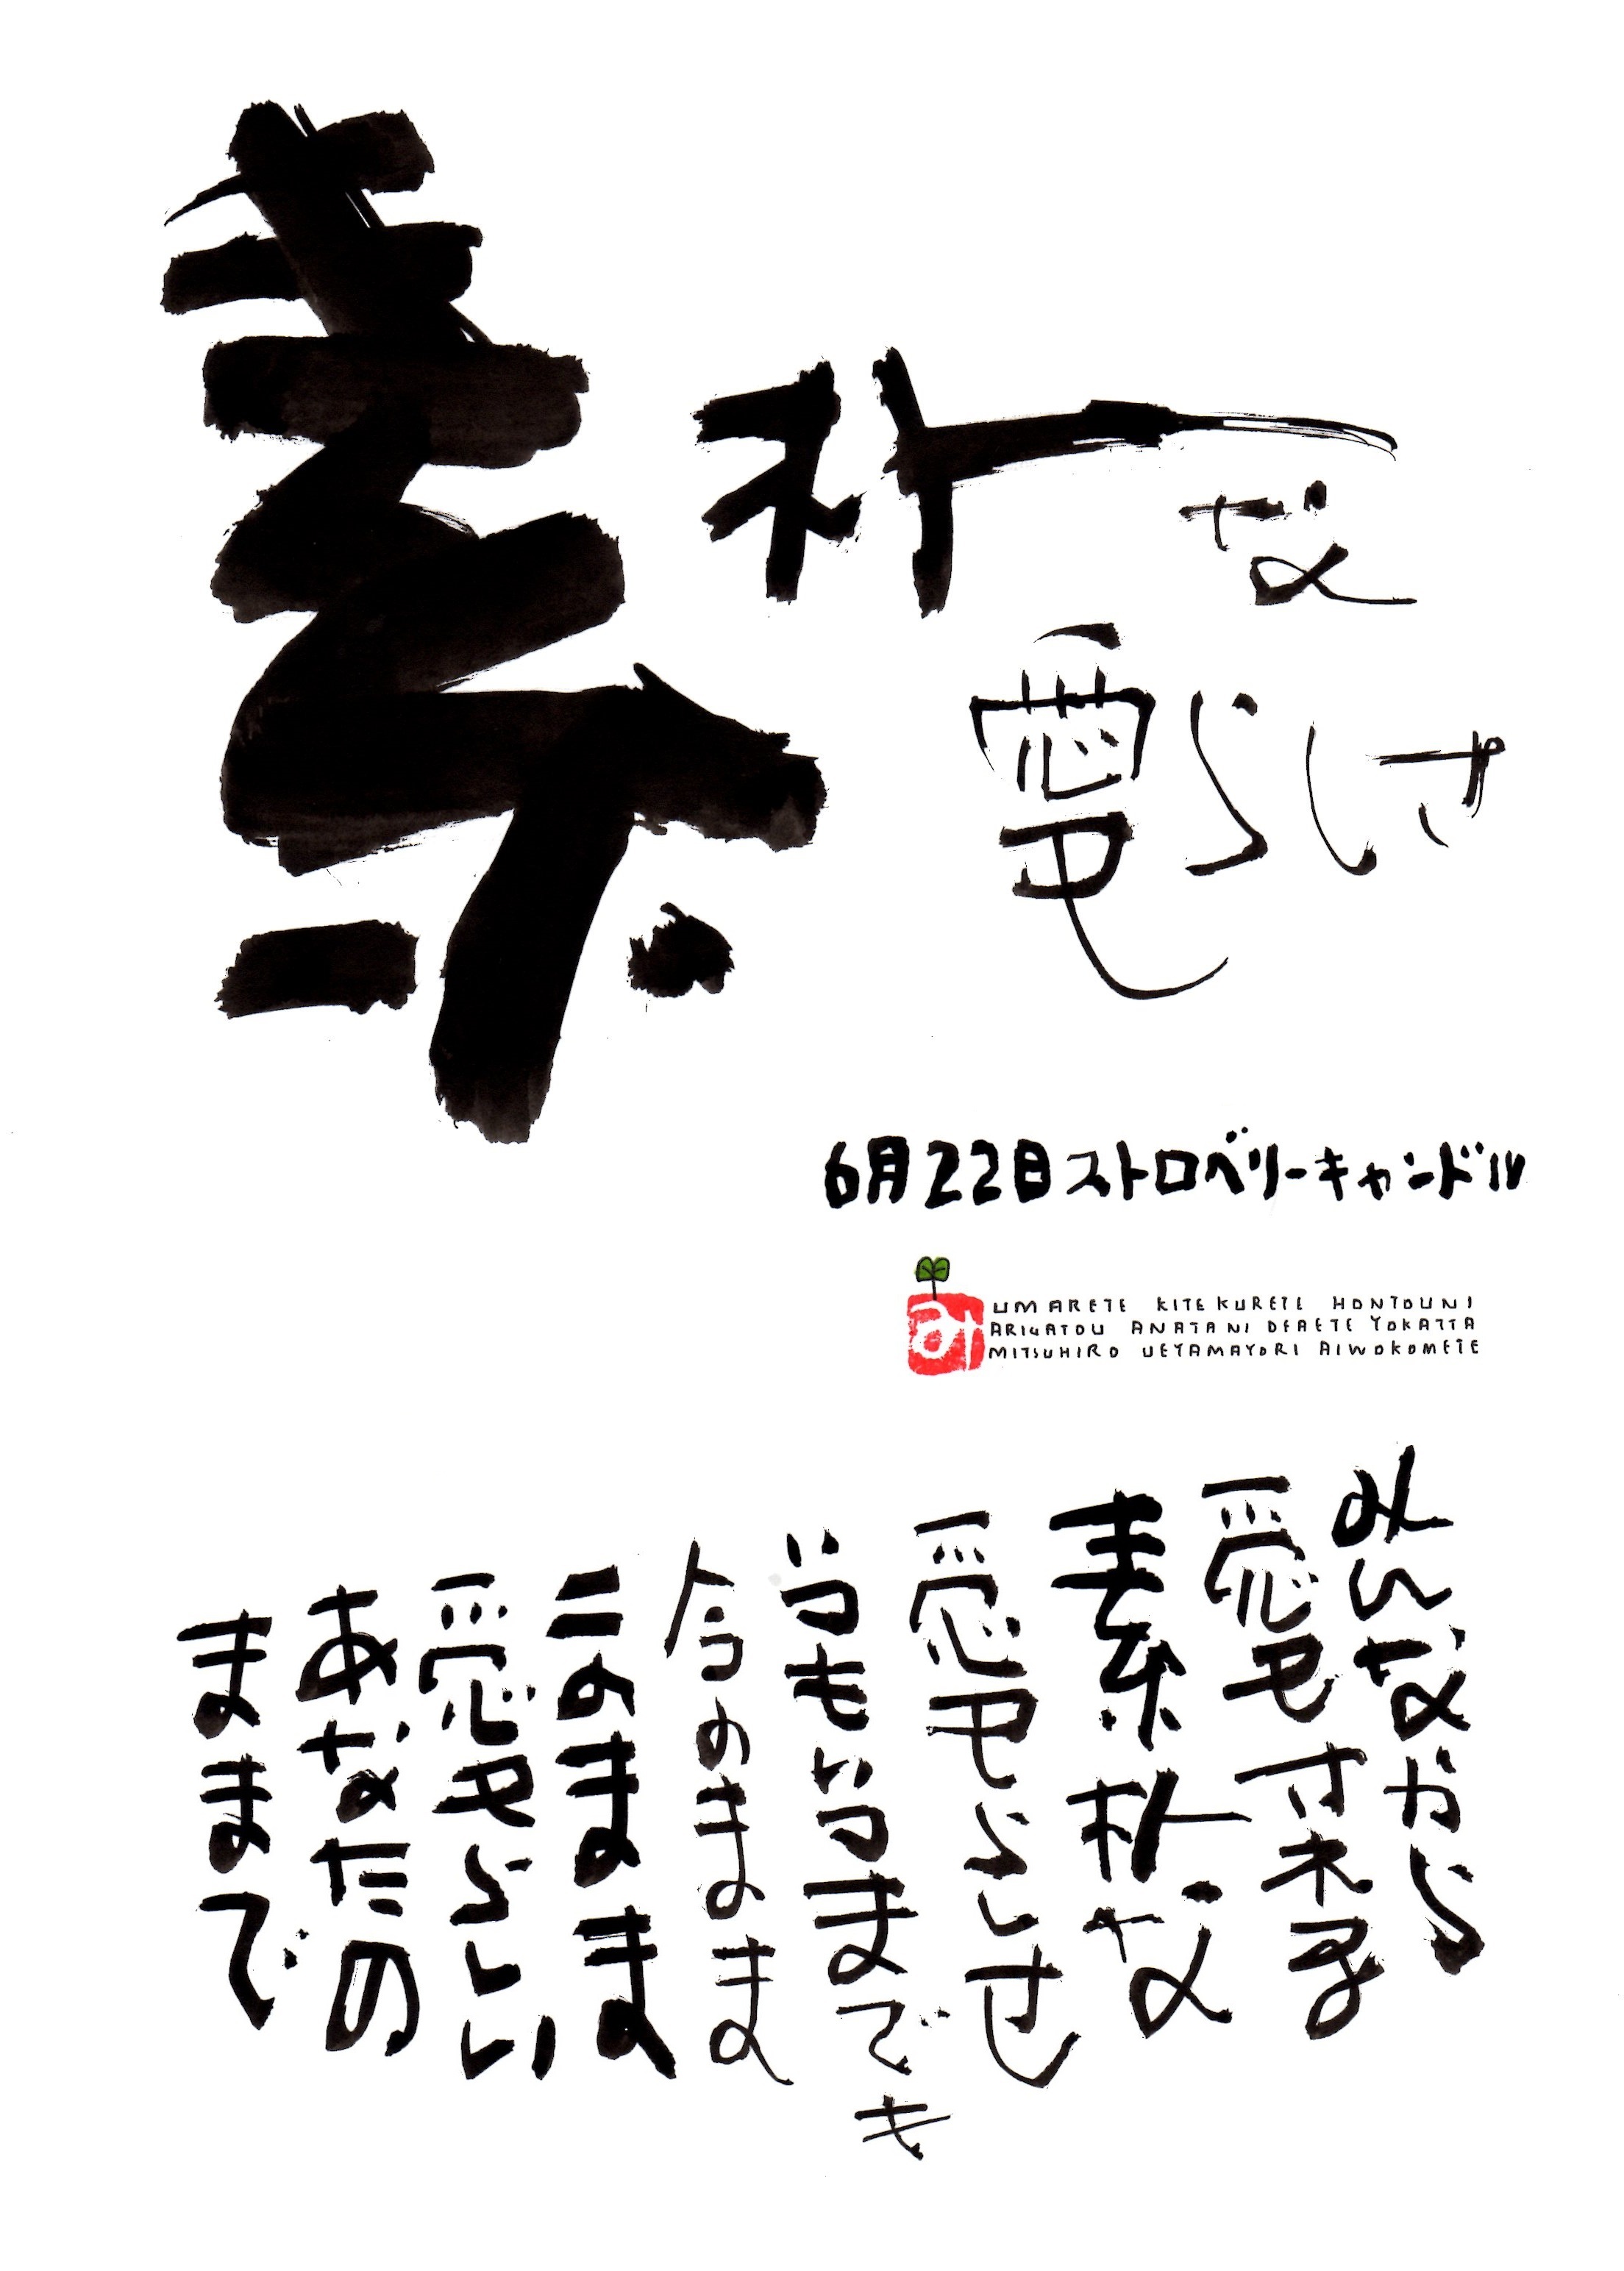 素朴な
愛らしさ
6月22日ストロベリーキャンドル
UMARETE KITEKURETE HONTOUNI
ARIGATOU ANATANI DEAETE YOKATTA
MITSUHIRO UEYAMAYORI AIWOKOMETE
みんなから
愛せれる
素朴な
愛らしさ
いつもいつまでも
今のまま
このまま
愛らしい
あなたの
ままで